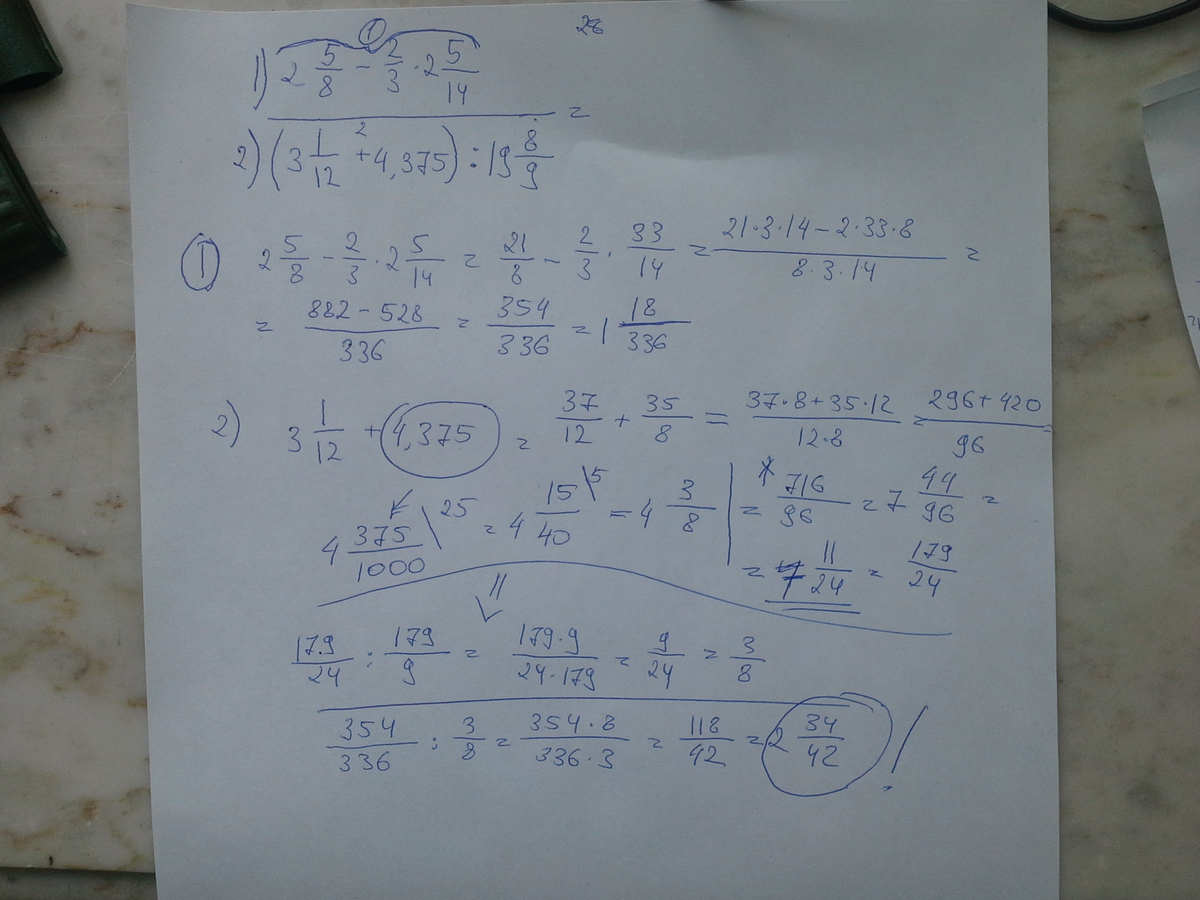 28
①
1) 2 5/8 - 2/3 · 2 5/14
=
2) (3 1/12 + 4,375) : 19 8/9
2
① 2 5/8 - 2/3 · 2 5/14 = 21/8 - 2/3 · 33/14 = 21·3·14-2·33·8/8·3·14 =
= 882-528/336 = 354/336 = 1 18/336
2) 3 1/12 + 4,375 = 37/12 + 35/8 = 37·8+35·12/12·8 = 296+420/96 =
4 375/1000 \25 = 4 15/40 \5 = 4 3/8 | = 716/96 = 7 44/96 =
= 7 11/24 = 179/24
179/24 : 179/9 = 179·9/24·179 = 9/24 = 3/8
354/336 : 3/8 = 354·8/336·3 = 118/42 = 2 34/42 !